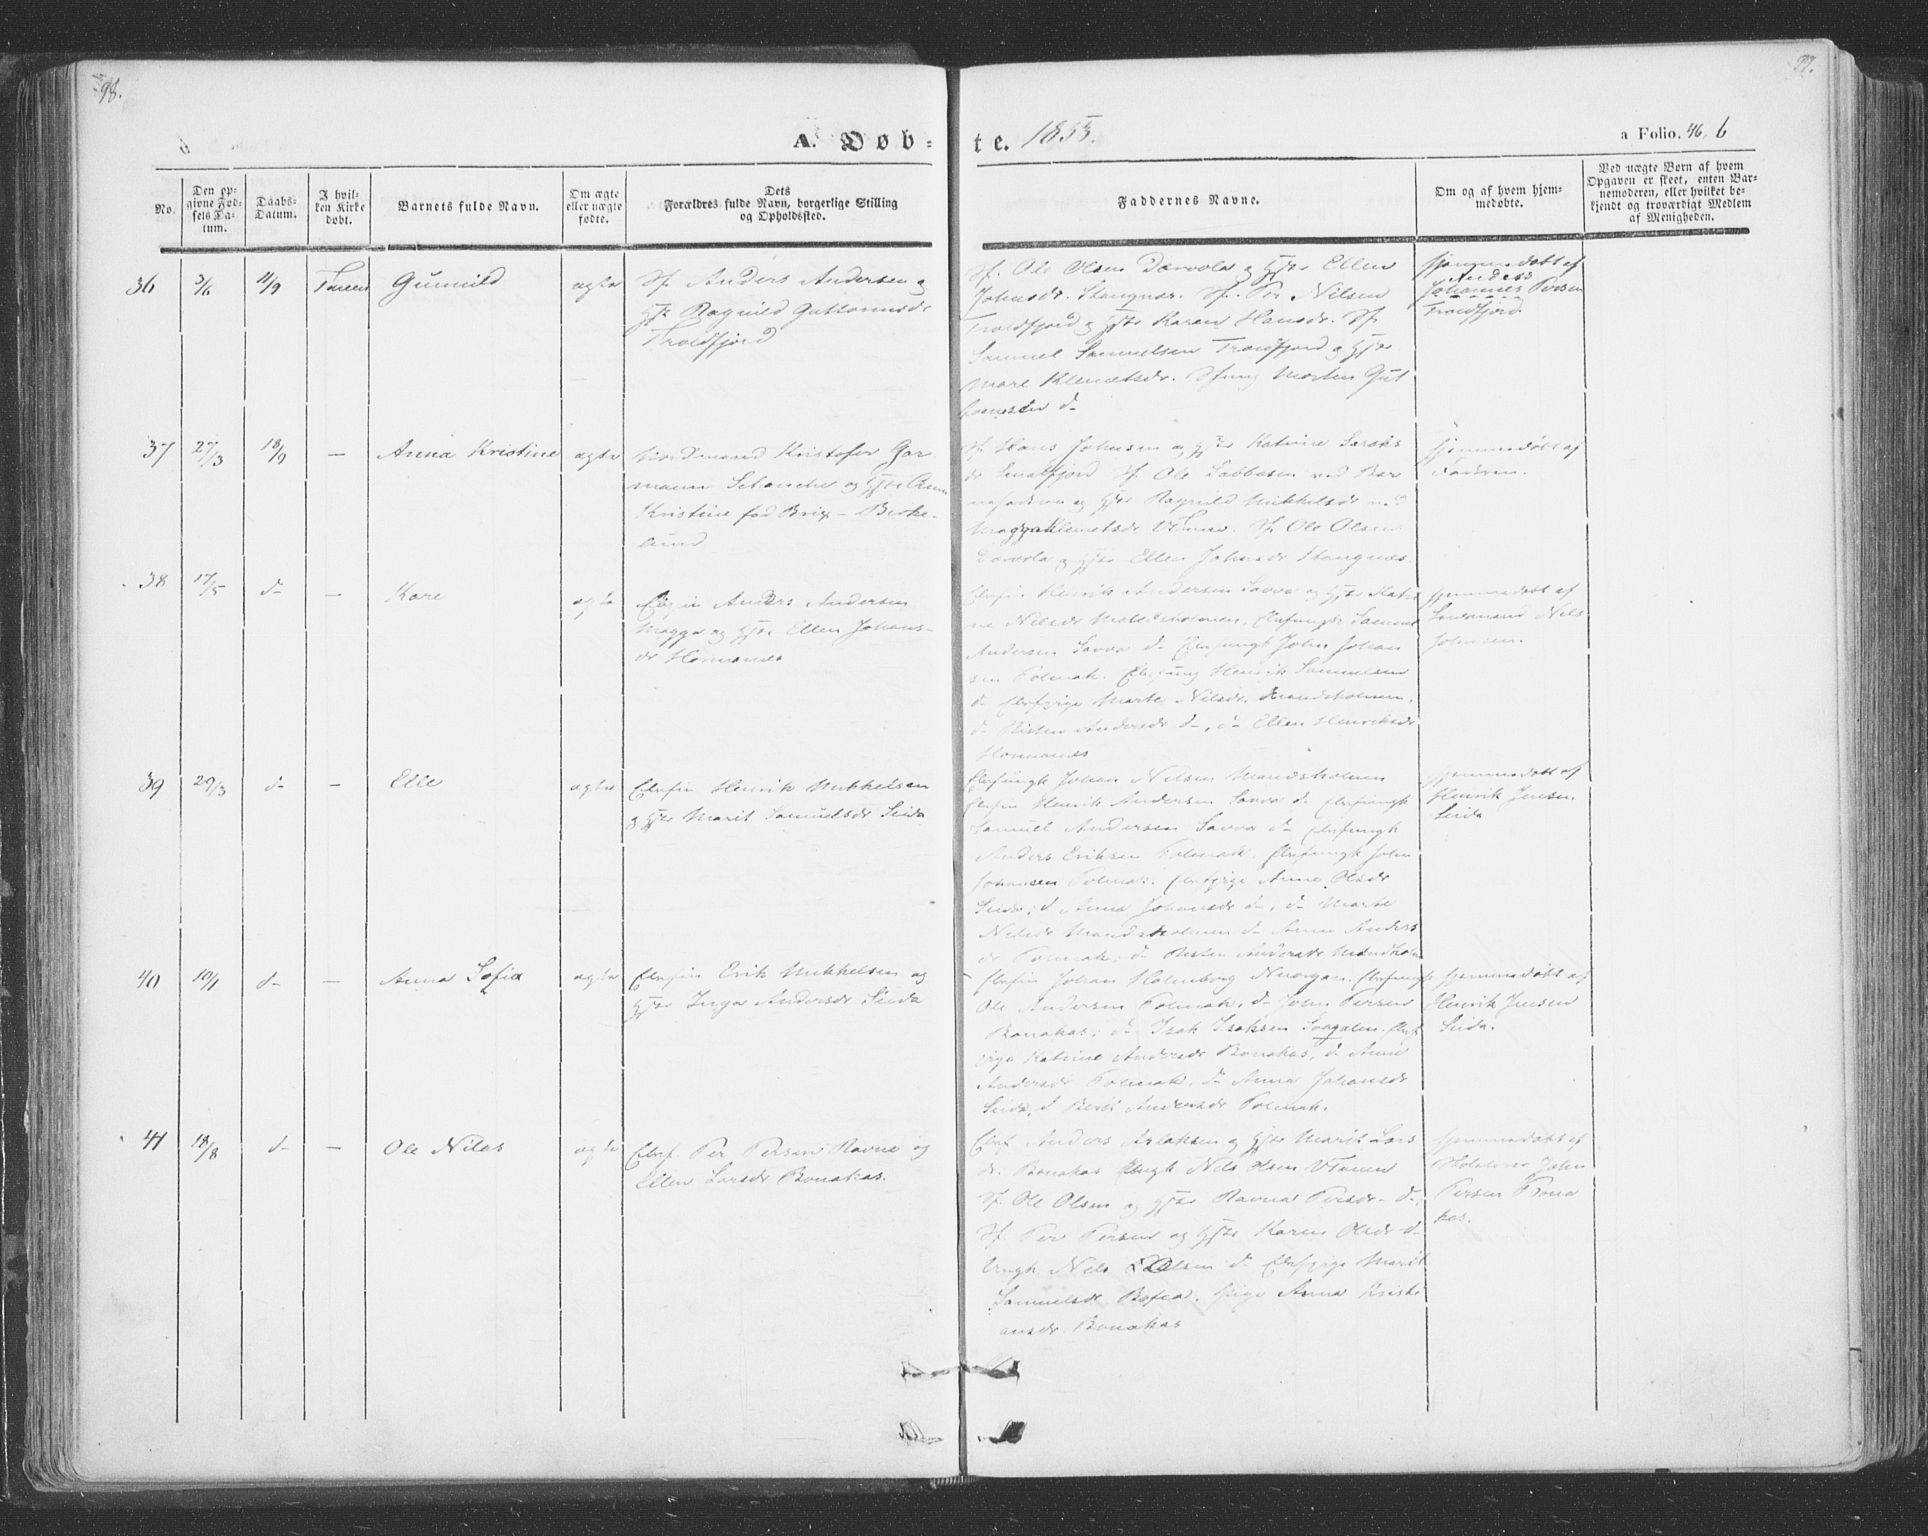 98.
A. Døb-
te. 1853.
a Folio. 46, b
No.
Den op-
givne Fød-
sels Da-
tum.
Daabs-
Datum.
I hvil-
ken Kirke
døbt.
Barnets fulde Navn.
Om ægte
eller uægte
fødte.
Dets
Forældres fulde Navn, borgerlige Stilling
og Opholdssted.
Faddernes Navne.
Om og af hvem hjem-
medøbte.
Ved uægte Børn af hvem
Opgaven er skeet, enten Bar-
nemoderen, eller hvilket be-
kjendt og troværdigt Medlem
af Menigheden.
36 3/6 4/9 Tanen Gunnild ægte Sf. Anders Andersen og
Hstr Ragnild Guttormsdr
Troldfjord
Sf. Ole Olsen og Hstr Ellen
Johnsdr. Stangnæs. Sf. Per Nilsen
Troldfjord og Hstr Karen Hansdr. Sf.
Samuel Samuelsen Troldfjord og Hstr
Mare Klemetsdr. Morten Gut
d-
hjemmedøbt af
Anders
Johannes Persen
Troldfjord.
37 27/3 18/9 — Anna Kristine ægte Nordmand Kristofer Gar
mann Schanche og Hstr Ann
Kristine fød Brix - Birke-
lund
Sf. Hans Johnsen og Hstr Katrine
dr Smalfjord Sf. Ole Sabbasen ved
og Hstr Ragnild Mikkelsdr
Magga Klemetsdr Sf. Ole Olsen
og Hstr Ellen Johnsdr Stangnæs
hjemmedøbt af
Faderen.
38 17/5 d- — Kare ægte Elvfin Anders Andersen
Magga og Hstr Ellen Johans-
dr Hornanes
Elvfin Henrik Andersen Savva og Hstr Katri
ne Nilsdr Elvfungk Samuel
Andersen Savva d- Elvfungk John Johan
sen Polmak. Henrik Samuelsen
d- Elvfpige Marte Nilsdr.
d- Risten Andersdr d-, d- Ellen Henriksdr
Hornanes
hjemmedøbt af
Nils
Johnsen.
39 29/3 d- — Elle ægte Elvfin Henrik Mikkelsen
og Hstr Marit Samuelsdr Seida
Elvfungk Johan Nilsen Mandsholmen
Elvfin Henrik Andersen Savva d- Elvfungk
Samuel Andersen Savva d- Elvfungk
Anders Eriksen Polmak. Elvfungk John
Johansen Polmak. Elvfpige Anne Olsdr
Seida, d Anna Johansdr d-, d- Marte
Nilsdr Mandsholmen d- Anne Anders
dr Polmak; d- Risten Andersdr Mandsholm
hjemmedøbt af
Henrik Jensen
Seida
40 10/1 d- — Anna Sofia ægte Elvfin Erik Mikkelsen og
Hstr Inga Andersdr Seida
Elvfin Johan Holmberg Elvfungk
Ole Andersen Polmak, d- John Persen
Bonakas; d- Isak Isaksen Elvf
pige Katrine Andersdr Bonakas, d- Anne
Andersdr Polmak, d- Anna Johansdr
Seida, d Berit Andersdr Polmak.
hjemmedøbt af
Henrik Jensen
Seida.
41 18/8 d- — Ole Nilas ægte Elvf. Per Persen Ravna og
Ellen Larsdr Bonakas.
Elvf. Anders Aslaksen og Hstr Marit Lars
dr. Bonakas Nils Olsen
Sf. Ole Olsen og Hstr Ravna Persdr d-,
Sf. Per Persen og Hstr Karen Olsdr d-
Ungk. Nils Olsen d- Elvfpige Marit
Samuelsdr Pige Anna Kristi
ansdr. Bonakas
hjemmedøbt af
John
Persen Bona
kas.